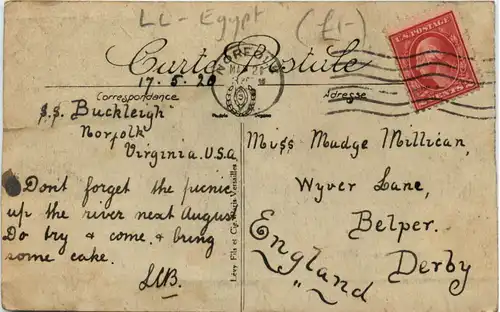 LL - Egypt
(£1-)
Carte Postale
U.S. POSTAGE
17.5.20
Correspondance
Adresse
S.S. Buckleigh
Norfolk
Virginia. U.S.A.
Don't forget the picnic
up the river next August
Do try & come. & bring
some cake.
Lévy Fils et Cie, Paris-Versailles
Miss Mudge Millican,
Wyver Lane,
Belper.
Derby
England